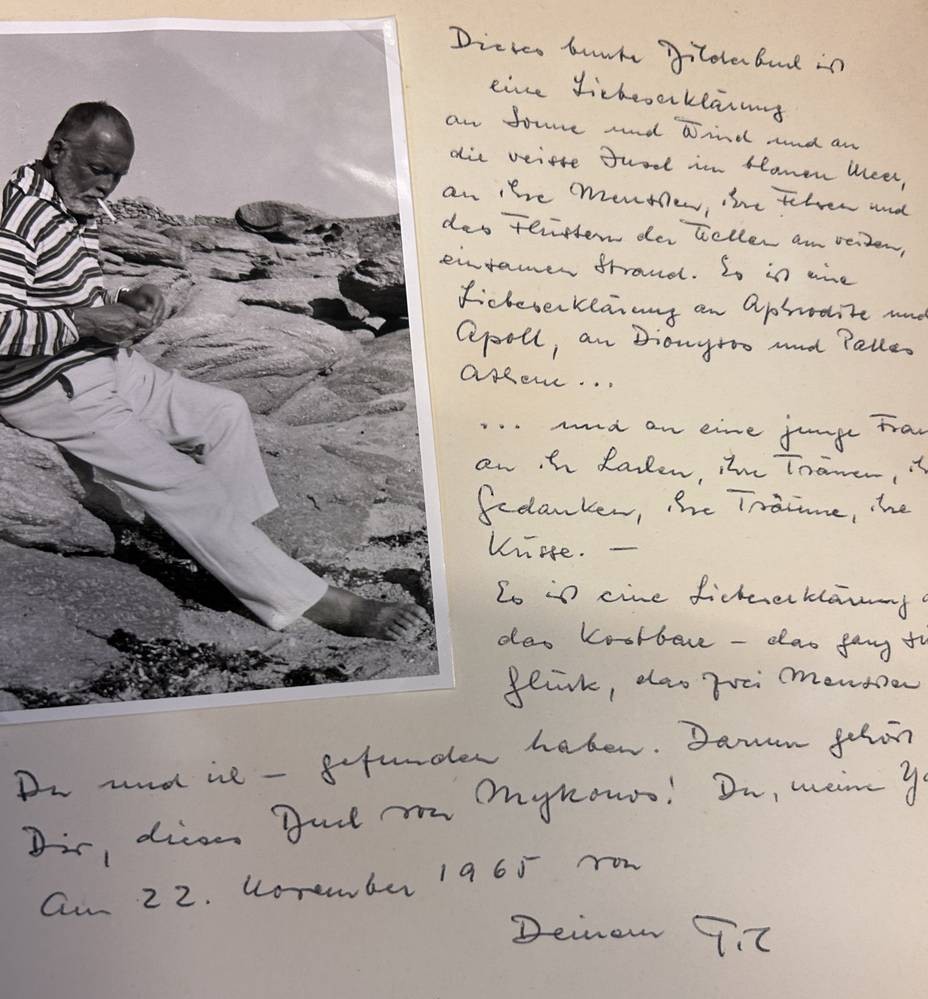 Dieses bunte Bilderbuch ist
eine Liebeserklärung
an Sonne und Wind und an
die weisse Insel im blauen Meer,
an ihre Menschen, ihre Fehren und
das Flüstern der Wellen am weiten,
einsamen Strand. Es ist eine
Liebeserklärung an Aphrodite und
Apoll, an Dionysos und Pallas
Athene ...
... und an eine junge Frau
an ihr Lachen, ihre Tränen, ih
Gedanken, ihre Träume, ihre
Küsse. —
Es ist eine Liebeserklärung a
das Kostbare – das ganz
Glück, das zwei Menschen
Du und ich – gefunden haben. Darum gehört
Dir, dieses Buch von Mykonos! Du, meine
Am 22. November 1965 von
Deinem